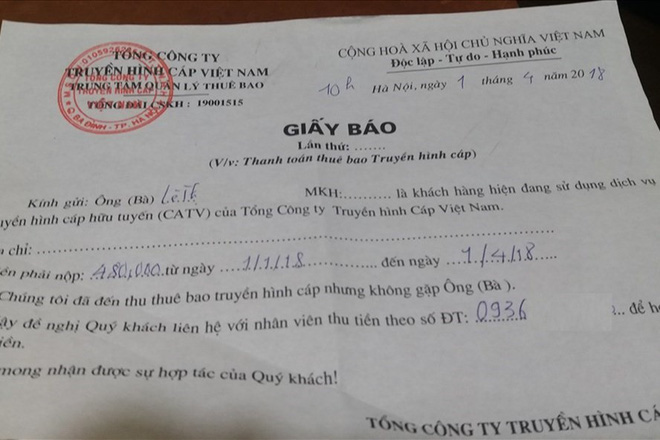 TỔNG CÔNG TY
TRUYỀN HÌNH CÁP VIỆT NAM
TRUNG TÂM QUẢN LÝ THUÊ BAO
TỔNG ĐÀI CSKH : 19001515
CỘNG HOÀ XÃ HỘI CHỦ NGHĨA VIỆT NAM
Độc lập - Tự do - Hạnh phúc
10h Hà Nội, ngày 1 tháng 4 năm 2018
GIẤY BÁO
Lần thứ: .......
(V/v: Thanh toán thuê bao Truyền hình cáp)
Kính gửi: Ông (Bà) MKH:.......... là khách hàng hiện đang sử dụng dịch vụ
uyền hình cáp hữu tuyến (CATV) của Tổng Công ty Truyền hình Cáp Việt Nam.
a chỉ:
ền phải nộp: 480,000 từ ngày ...1/1/18... đến ngày ...1/4/18...
Chúng tôi đã đến thu thuê bao truyền hình cáp nhưng không gặp Ông (Bà ).
ậy đề nghị Quý khách liên hệ với nhân viên thu tiền theo số ĐT: 0936 ... để
iền.
mong nhận được sự hợp tác của Quý khách!
TỔNG CÔNG TY TRUYỀN HÌNH CÁ